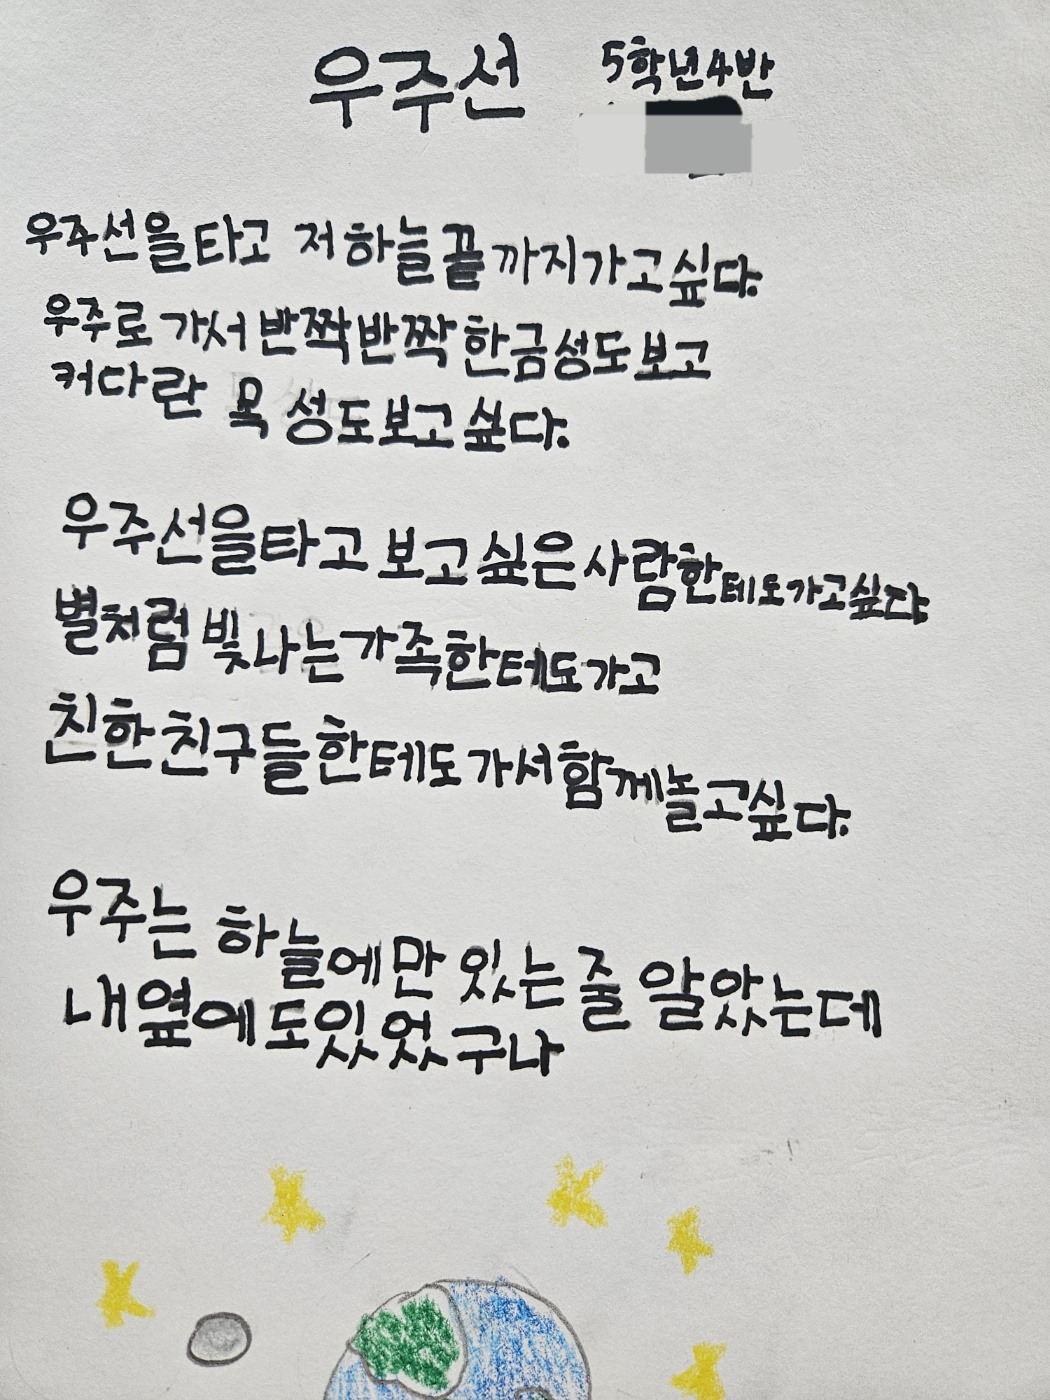 우주선
5학년4반
우주선을타고 저하늘끝까지가고싶다.
우주로 가서반짝반짝한금성도보고
커다란 목성도보고싶다.
우주선을타고 보고싶은사람한테도가고싶다.
별처럼빛나는가족한테도가고
친한친구들한테도가서함께놀고싶다.
우주는 하늘에만 있는줄알았는데
내옆에도있었구나